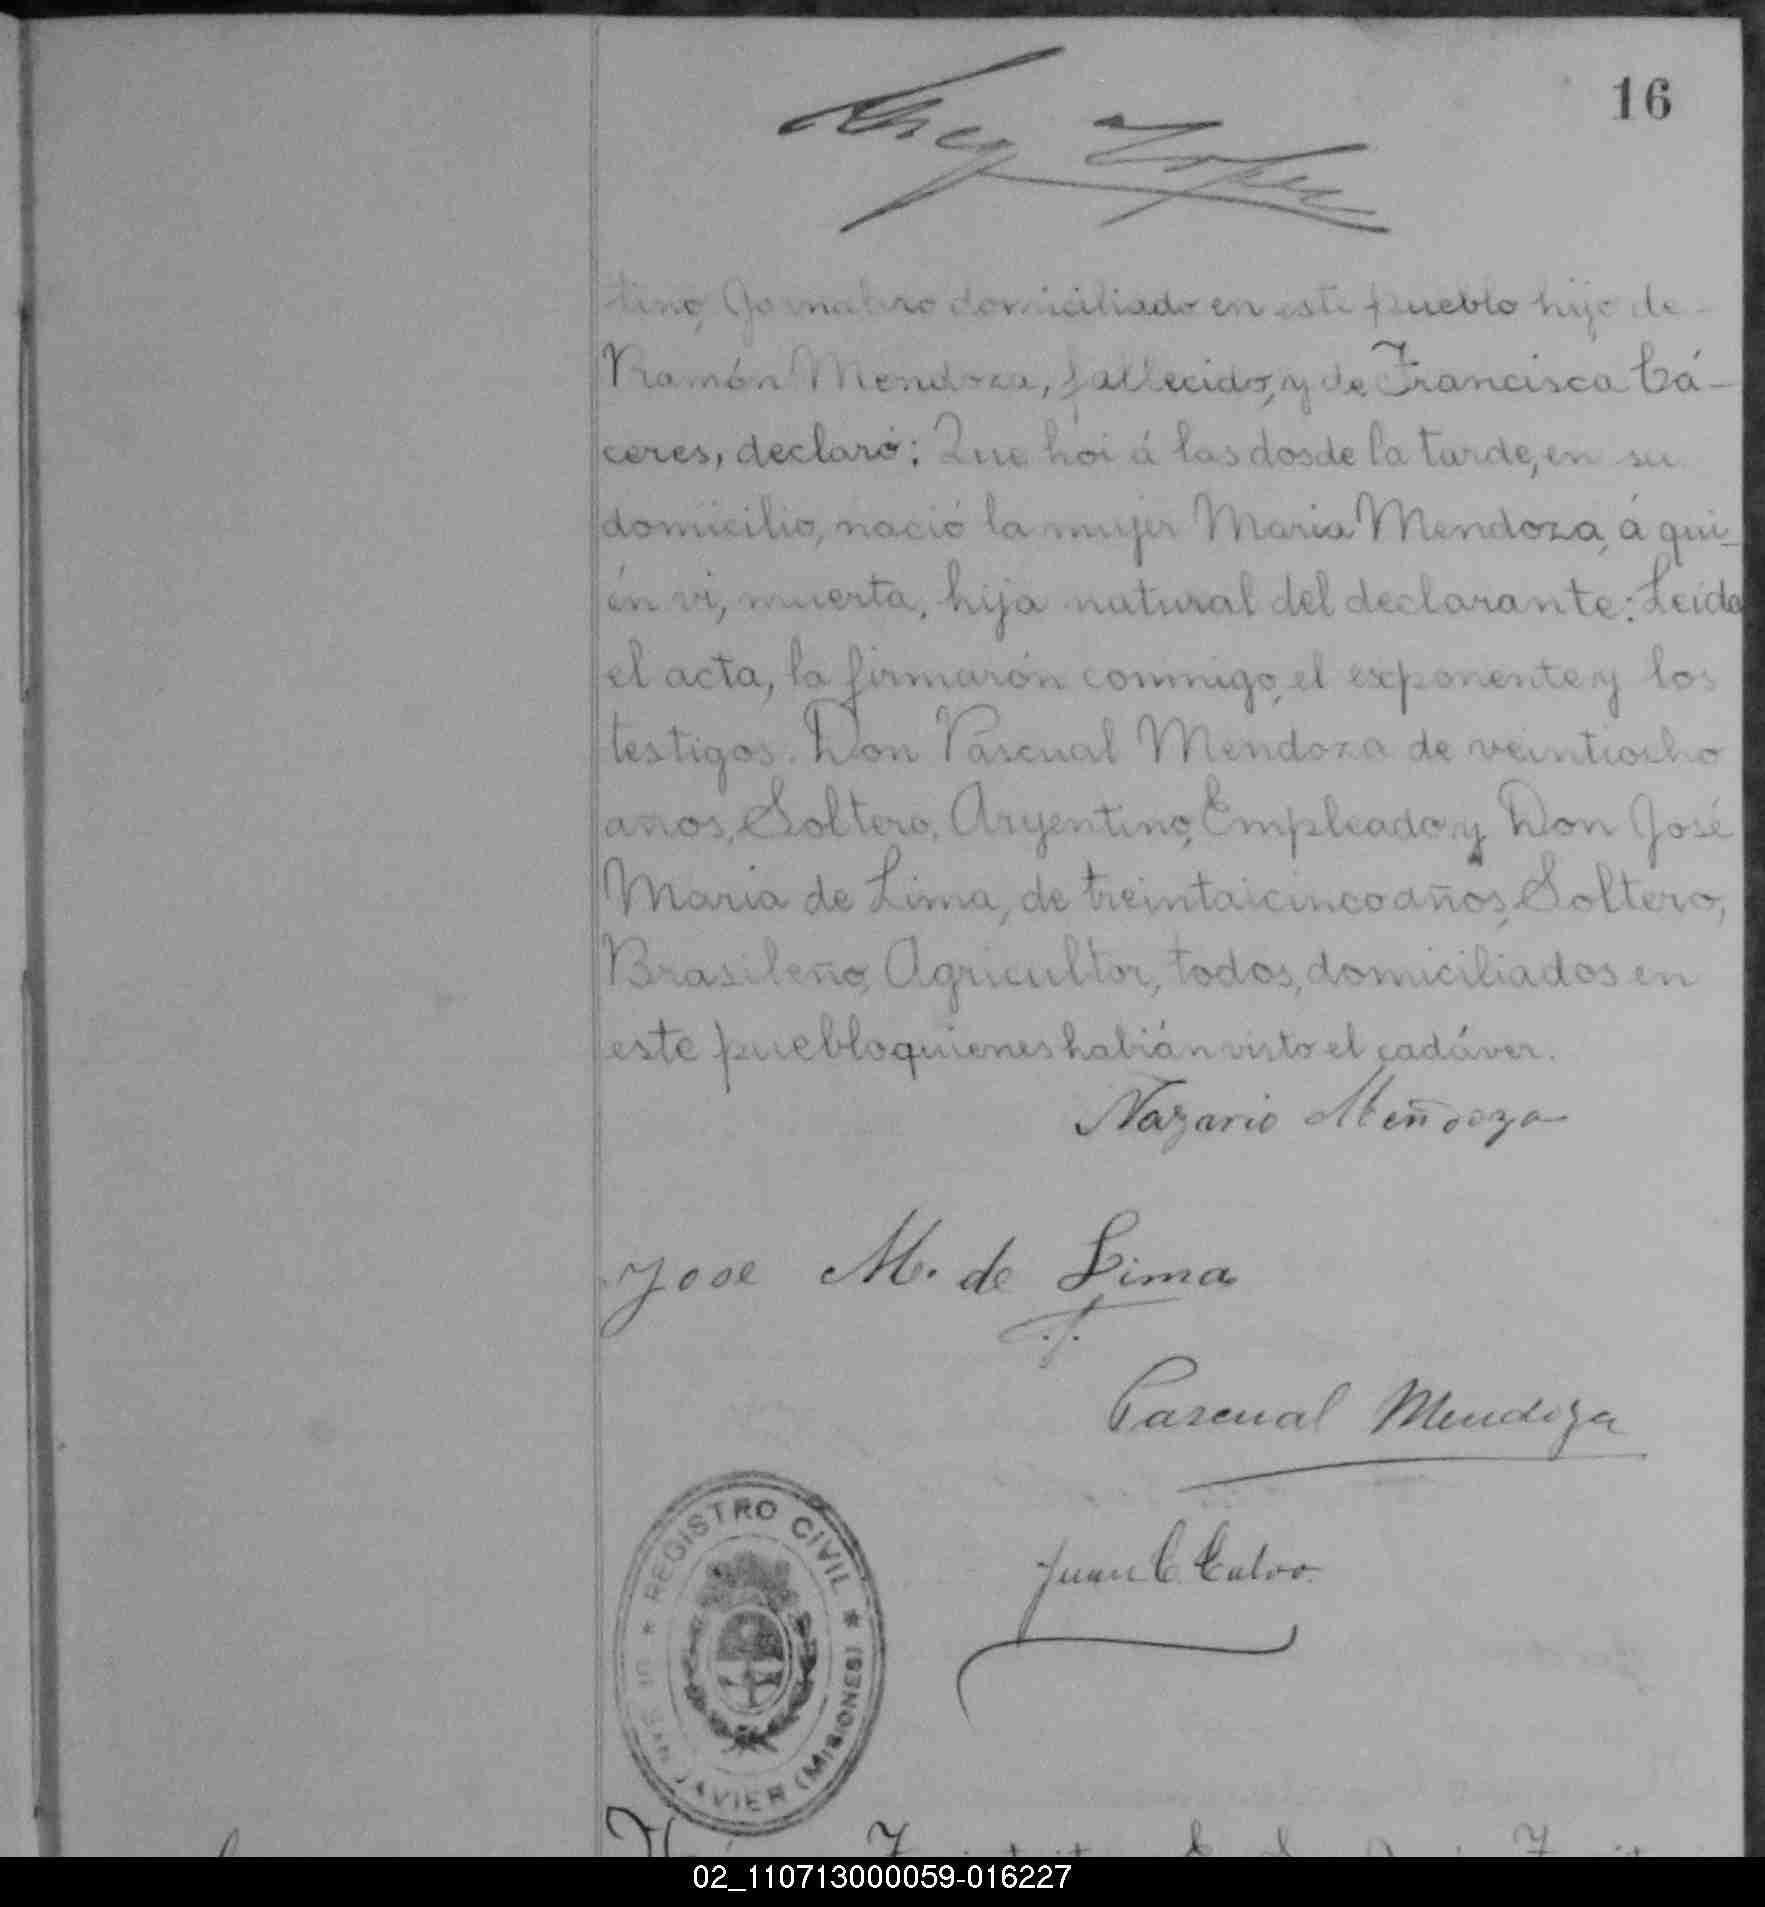 16
tino, Jornalero domiciliado en este pueblo hijo de
Ramón Mendoza, fallecido, y de Francisca Cá-
ceres, declaró: Que hoi á las dos de la tarde, en su
domicilio, nació la mujer Maria Mendoza, á qui-
én vi, muerta, hija natural del declarante: Leída
el acta, la firmarón conmigo, el exponente y los
testigos. Don Pascual Mendoza de veintiocho
años, Soltero, Argentino, Empleado y Don José
Maria de Lima, de treintaicinco años, Soltero,
Brasileño, Agricultor, todos, domiciliados en
este pueblo quienes habián visto el cadáver.
Nazario Meñdoza
Jose M. de Lima
Pascual Mendoza
Juan C. Calvo
REGISTRO CIVIL
DE SAN JAVIER (MISIONES)
02_110713000059-016227